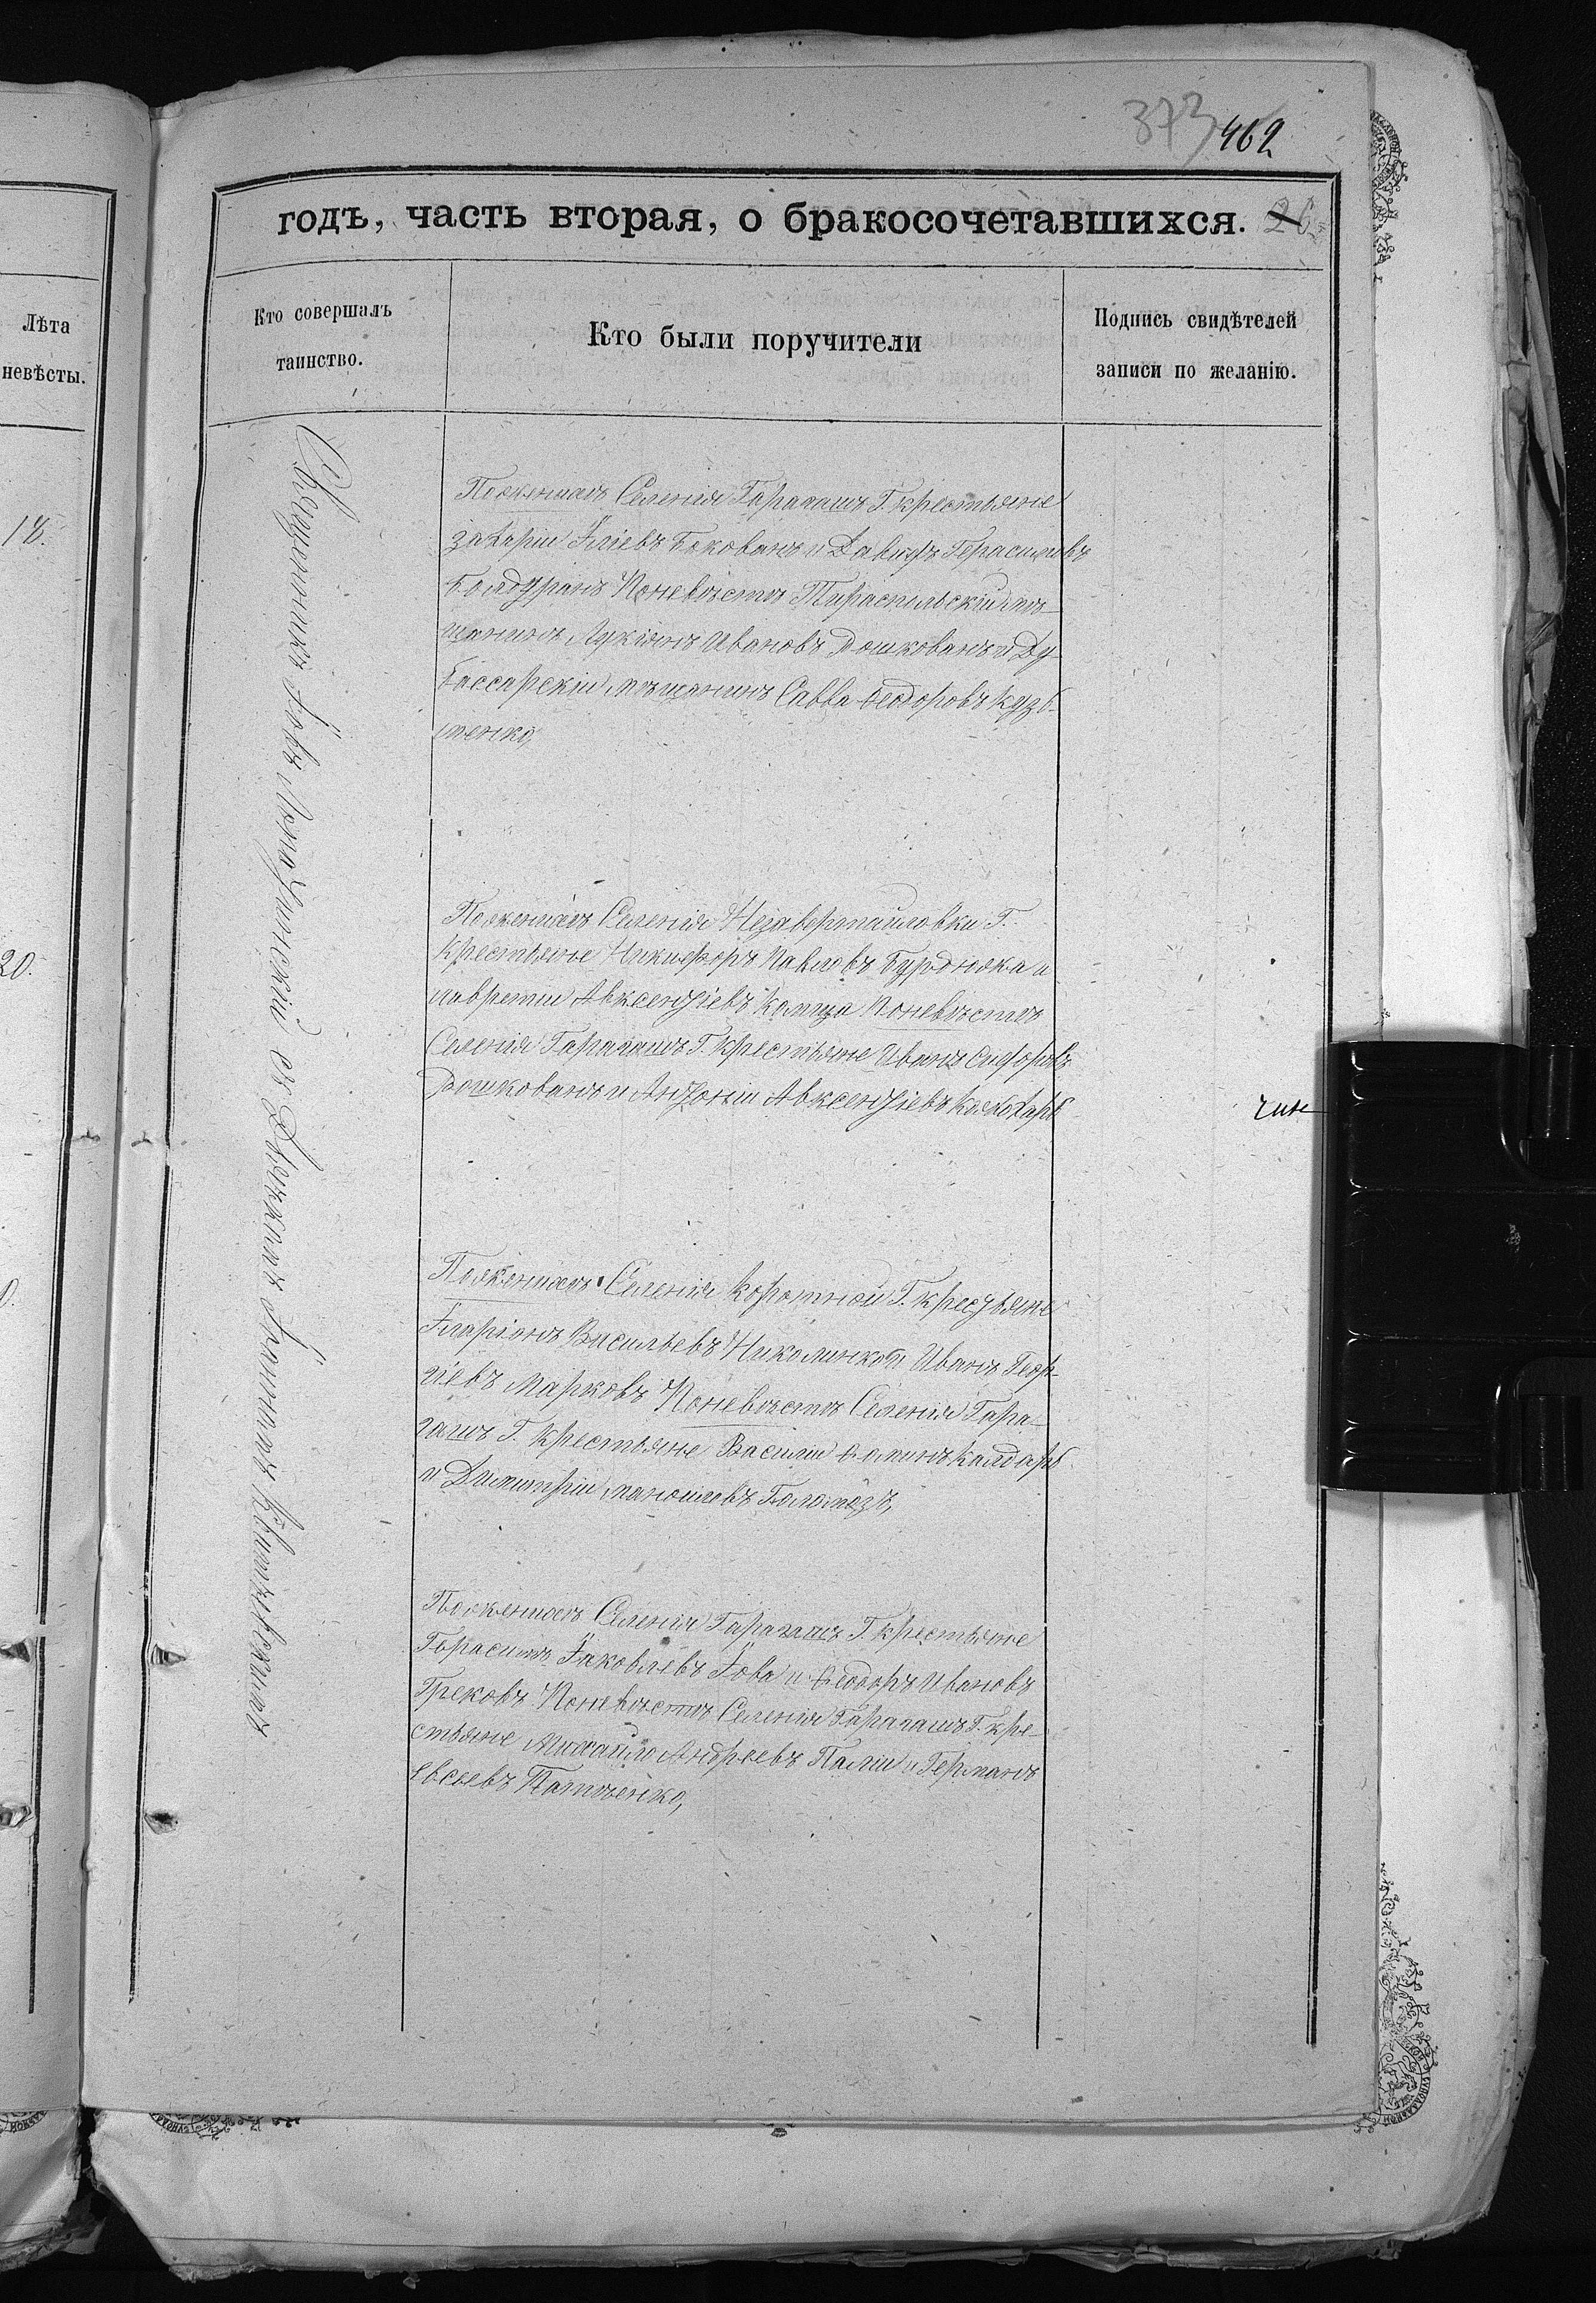 373 462
годъ, часть вторая, о бракосочетавшихся. 26
Лѣта
невѣсты.
18.
20.
Кто совершалъ
таинство.
Кто были поручители
Подпись свидѣтелей
записи по желанію.
Священникъ Іовъ съ Діакономъ
Поженихѣ Селенія Гарагашъ Г. крестьяне
Захарій Іліевъ Бокованъ и Давидъ Герасимовъ
Болдуранъ Поневѣстѣ Тираспольскій мѣ-
щанинъ Лукіянъ Ивановъ Дошкованъ и Ду-
бассарскій мѣщанинъ Савва Ѳеодоровъ Кузь-
менко,
Поженихѣ Селенія Незавертайловки Г.
крестьяне Никифоръ Павловъ Бурдюжа и
Лаврентій Авксентіевъ Комца Поневѣстѣ
Селенія Гарагашъ Г. крестьяне Иванъ Сидоровъ
Дошкованъ и Антоній Авксентіевъ
Поженихѣ Селенія Коротной Г. крестьяне
Іларіонъ Васильевъ и Иванъ Геор-
гіевъ Марковъ Поневѣстѣ Селенія Гара-
гашъ Г. крестьяне Василій Ѳоминъ Калдарь
и Димитрій Маноиловъ Боломозъ,
Поженихѣ Селенія Гарагашъ Г. крестьяне
Герасимъ Іаковлевъ Іова и Ѳеодоръ Ивановъ
Грековъ Поневѣстѣ Селенія Гарагашъ Г. кре-
стьяне Михаилъ Андреевъ Палій и Германъ
Евсѣевъ